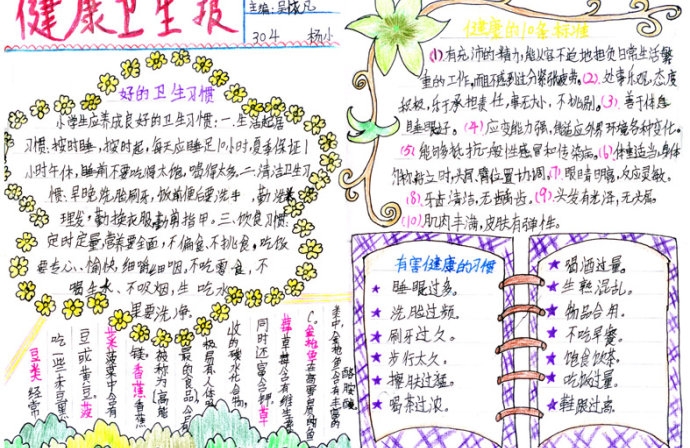 健康卫生报
主编:吴依凡
304 杨小
好的卫生习惯
小学生应养成良好的卫生习惯:一.生活起居
习惯:按时睡,按时起,每天应睡足10小时,夏季保证1
小时午休,睡前不要吃得太饱,喝得太多.二.清洁卫生习
惯:早晚洗脸刷牙,饭前便后要洗手,勤洗
理发,勤换衣服勤剪指甲。三.饮食习惯:
定时定量,营养要全面,不偏食,不挑食,吃饭
要专心、愉快,细嚼 咽,不吃零食,不
喝生水、不吸烟,生吃水
果要洗净。
健康的10条标准
(1).有充沛的精力,能从容不迫地担负日常生活繁
重的工作,而且不感到过分紧张疲劳。(2).处事乐观,态度
积极,乐于承担责任,事无大小,不挑剔。(3).善于休息
睡眠好。(4)应变能力强,能适应外界环境各种变化。
(5).能够抵抗一般性感冒和传染病。(6)体重适当,身体
匀称,站立时,头、肩、臂位置协调。(7).眼睛明亮,反应灵敏。
(8).牙齿清洁,无齿病齿。(9).头发有光泽,无头屑。
(10).肌肉丰满,皮肤有弹性。
有害健康的习惯
睡眠过多。
洗脸过频。
刷牙过久。
步行太久。
擦肤过猛。
喝茶过浓。
喝酒过量。
生熟混乱。
物品合用。
不吃早餐。
饱食饮茶。
吃饭过量。
鞋跟过高。
酪胺酸
素中,金枪鱼含有丰富的
C。金枪鱼在高蛋白的鱼
莓 草莓含有维生素
同时还富含钾。草
收的碳水化合物,
极易有人体吸
最的食品,含有
被称为
镁。香蕉 香蕉
菜 菠菜中含有
豆或黄豆。菠
吃一些赤豆黑
豆类 经常